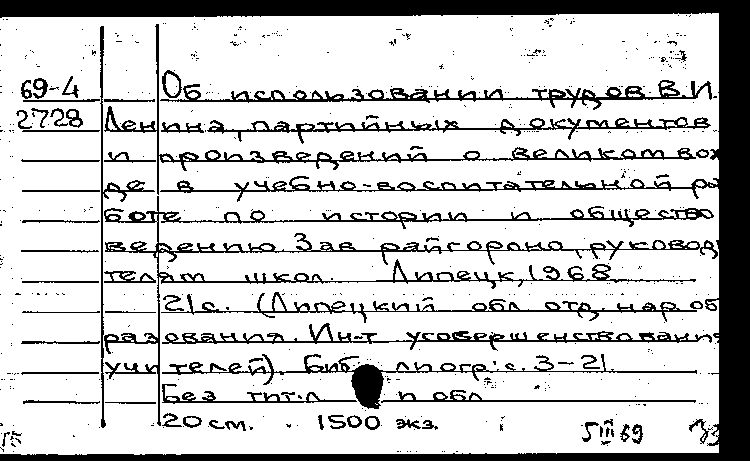 69-4 Об использовании трудов В.И.
2728 Ленина, партийных документов
и произведений о великом вож
де в учебно-воспитательной ра
боте по истории и общество
ведению Зав райгороно, руковод
телям школ. Липецк, 1968
21с. (Липецкий обл отд. нар об
разования. Ин-т усовершенствования
учителей). Библиогр: с. 3-21.
Без тит.л и обл
20 см. 1500 экз. 5 III 69